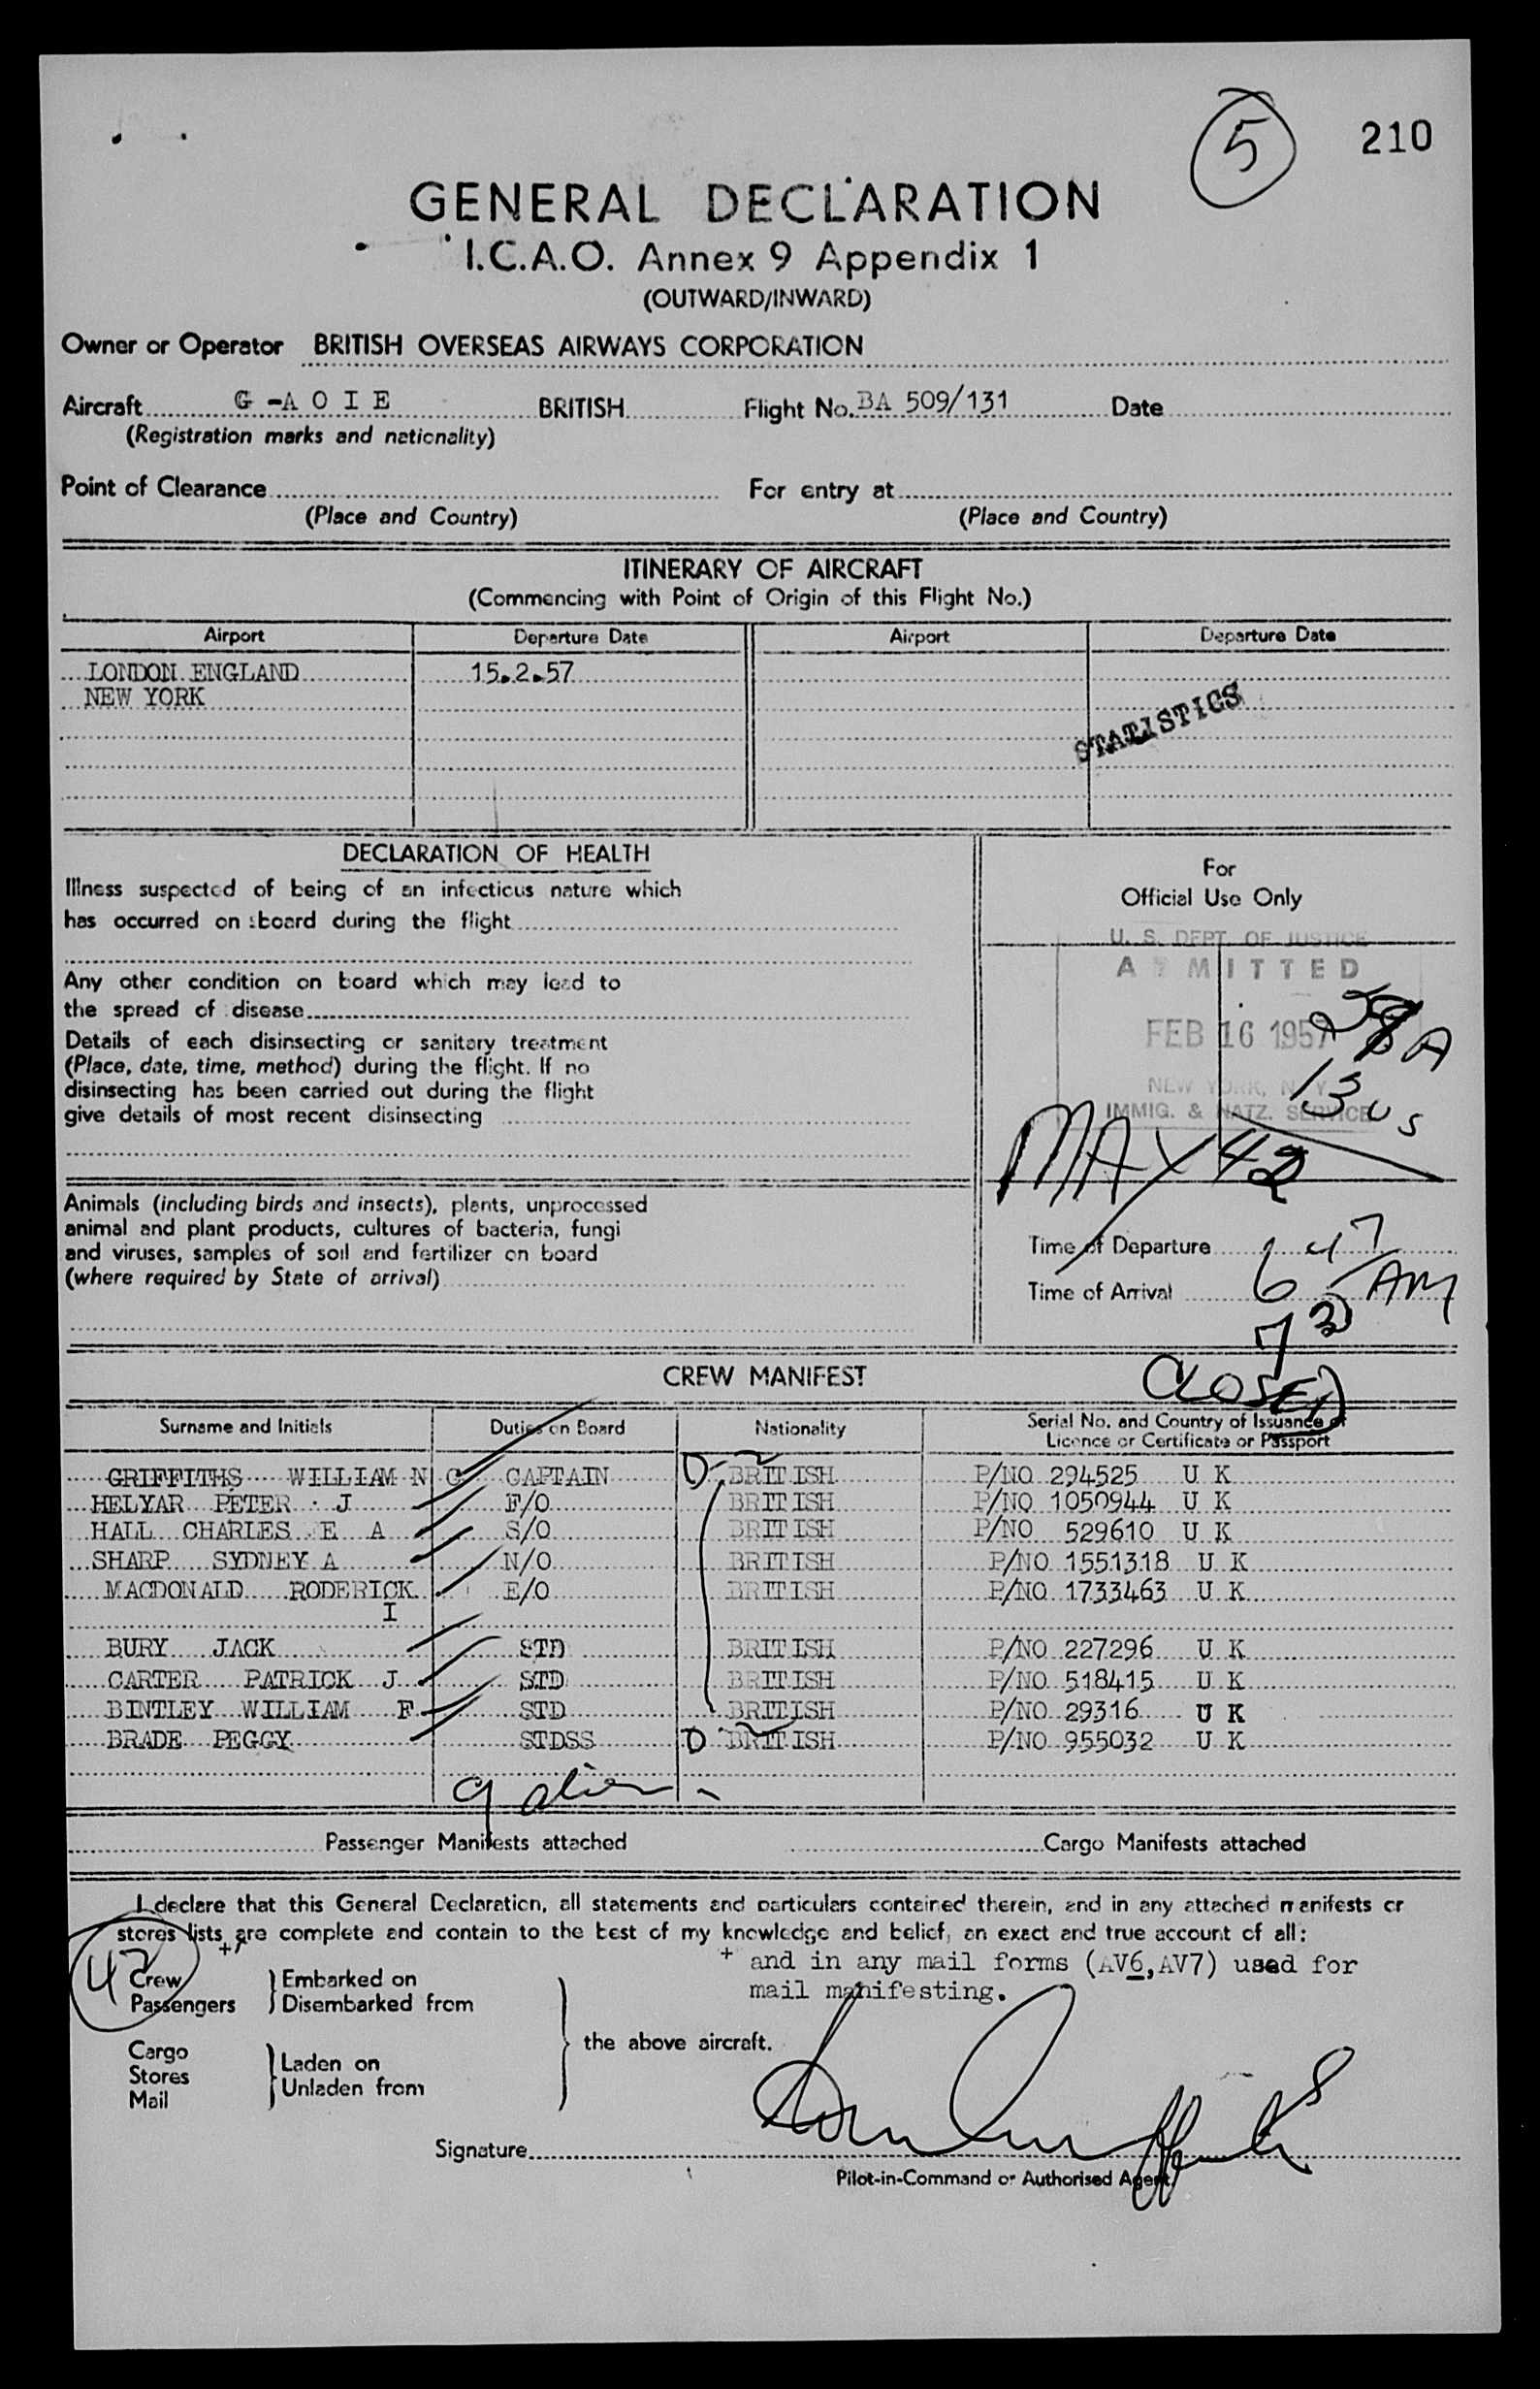 5 210
GENERAL DECLARATION
I.C.A.O. Annex 9 Appendix 1
(OUTWARD/INWARD)
Owner or Operator BRITISH OVERSEAS AIRWAYS CORPORATION
Aircraft G-A O I E BRITISH Flight No. BA 509/131 Date
(Registration marks and nationality)
Point of Clearance For entry at
(Place and Country) (Place and Country)
ITINERARY OF AIRCRAFT
(Commencing with Point of Origin of this Flight No.)
Airport Departure Date Airport Departure Date
LONDON ENGLAND 15.2.57
NEW YORK
STATISTICS
DECLARATION OF HEALTH
Illness suspected of being of an infectious nature which
has occurred on board during the flight
Any other condition on board which may lead to
the spread of disease
Details of each disinsecting or sanitary treatment
(Place, date, time, method) during the flight. If no
disinsecting has been carried out during the flight
give details of most recent disinsecting
Animals (including birds and insects), plants, unprocessed
animal and plant products, cultures of bacteria, fungi
and viruses, samples of soil and fertilizer on board
(where required by State of arrival)
For
Official Use Only
U. S. DEPT OF JUSTICE
ADMITTED
FEB 16 1957
A
NEW YORK, N.Y.
13 US
IMMIG. & NATZ. SERVICE
MAY 42
Time of Departure 6 47
Time of Arrival 6 AM
7
CLOSED
CREW MANIFEST
Surname and Initials Duties on Board Nationality Serial No. and Country of Issuance of
Licence or Certificate or Passport
GRIFFITHS WILLIAM N G CAPTAIN BRITISH P/NO 294525 U K
HELYAR PETER J F/O BRITISH P/NO 1050944 U K
HALL CHARLES E A S/O BRITISH P/NO 529610 U K
SHARP SYDNEY A N/O BRITISH P/NO 1551318 U K
MACDONALD RODERICK E/O BRITISH P/NO 1733463 U K
I
BURY JACK STD BRITISH P/NO 227296 U K
CARTER PATRICK J STD BRITISH P/NO 518415 U K
BINTLEY WILLIAM F STD BRITISH P/NO 29316 U K
BRADE PEGGY STDSS BRITISH P/NO 955032 U K
9 alien
Passenger Manifests attached Cargo Manifests attached
I declare that this General Declaration, all statements and particulars contained therein, and in any attached manifests or
stores lists are complete and contain to the best of my knowledge and belief, an exact and true account of all:
+ + and in any mail forms (AV6,AV7) used for
mail manifesting.
42
Crew Embarked on
Passengers Disembarked from
the above aircraft.
Cargo
Stores Laden on
Mail Unladen from
Signature
Pilot-in-Command or Authorised Agent.